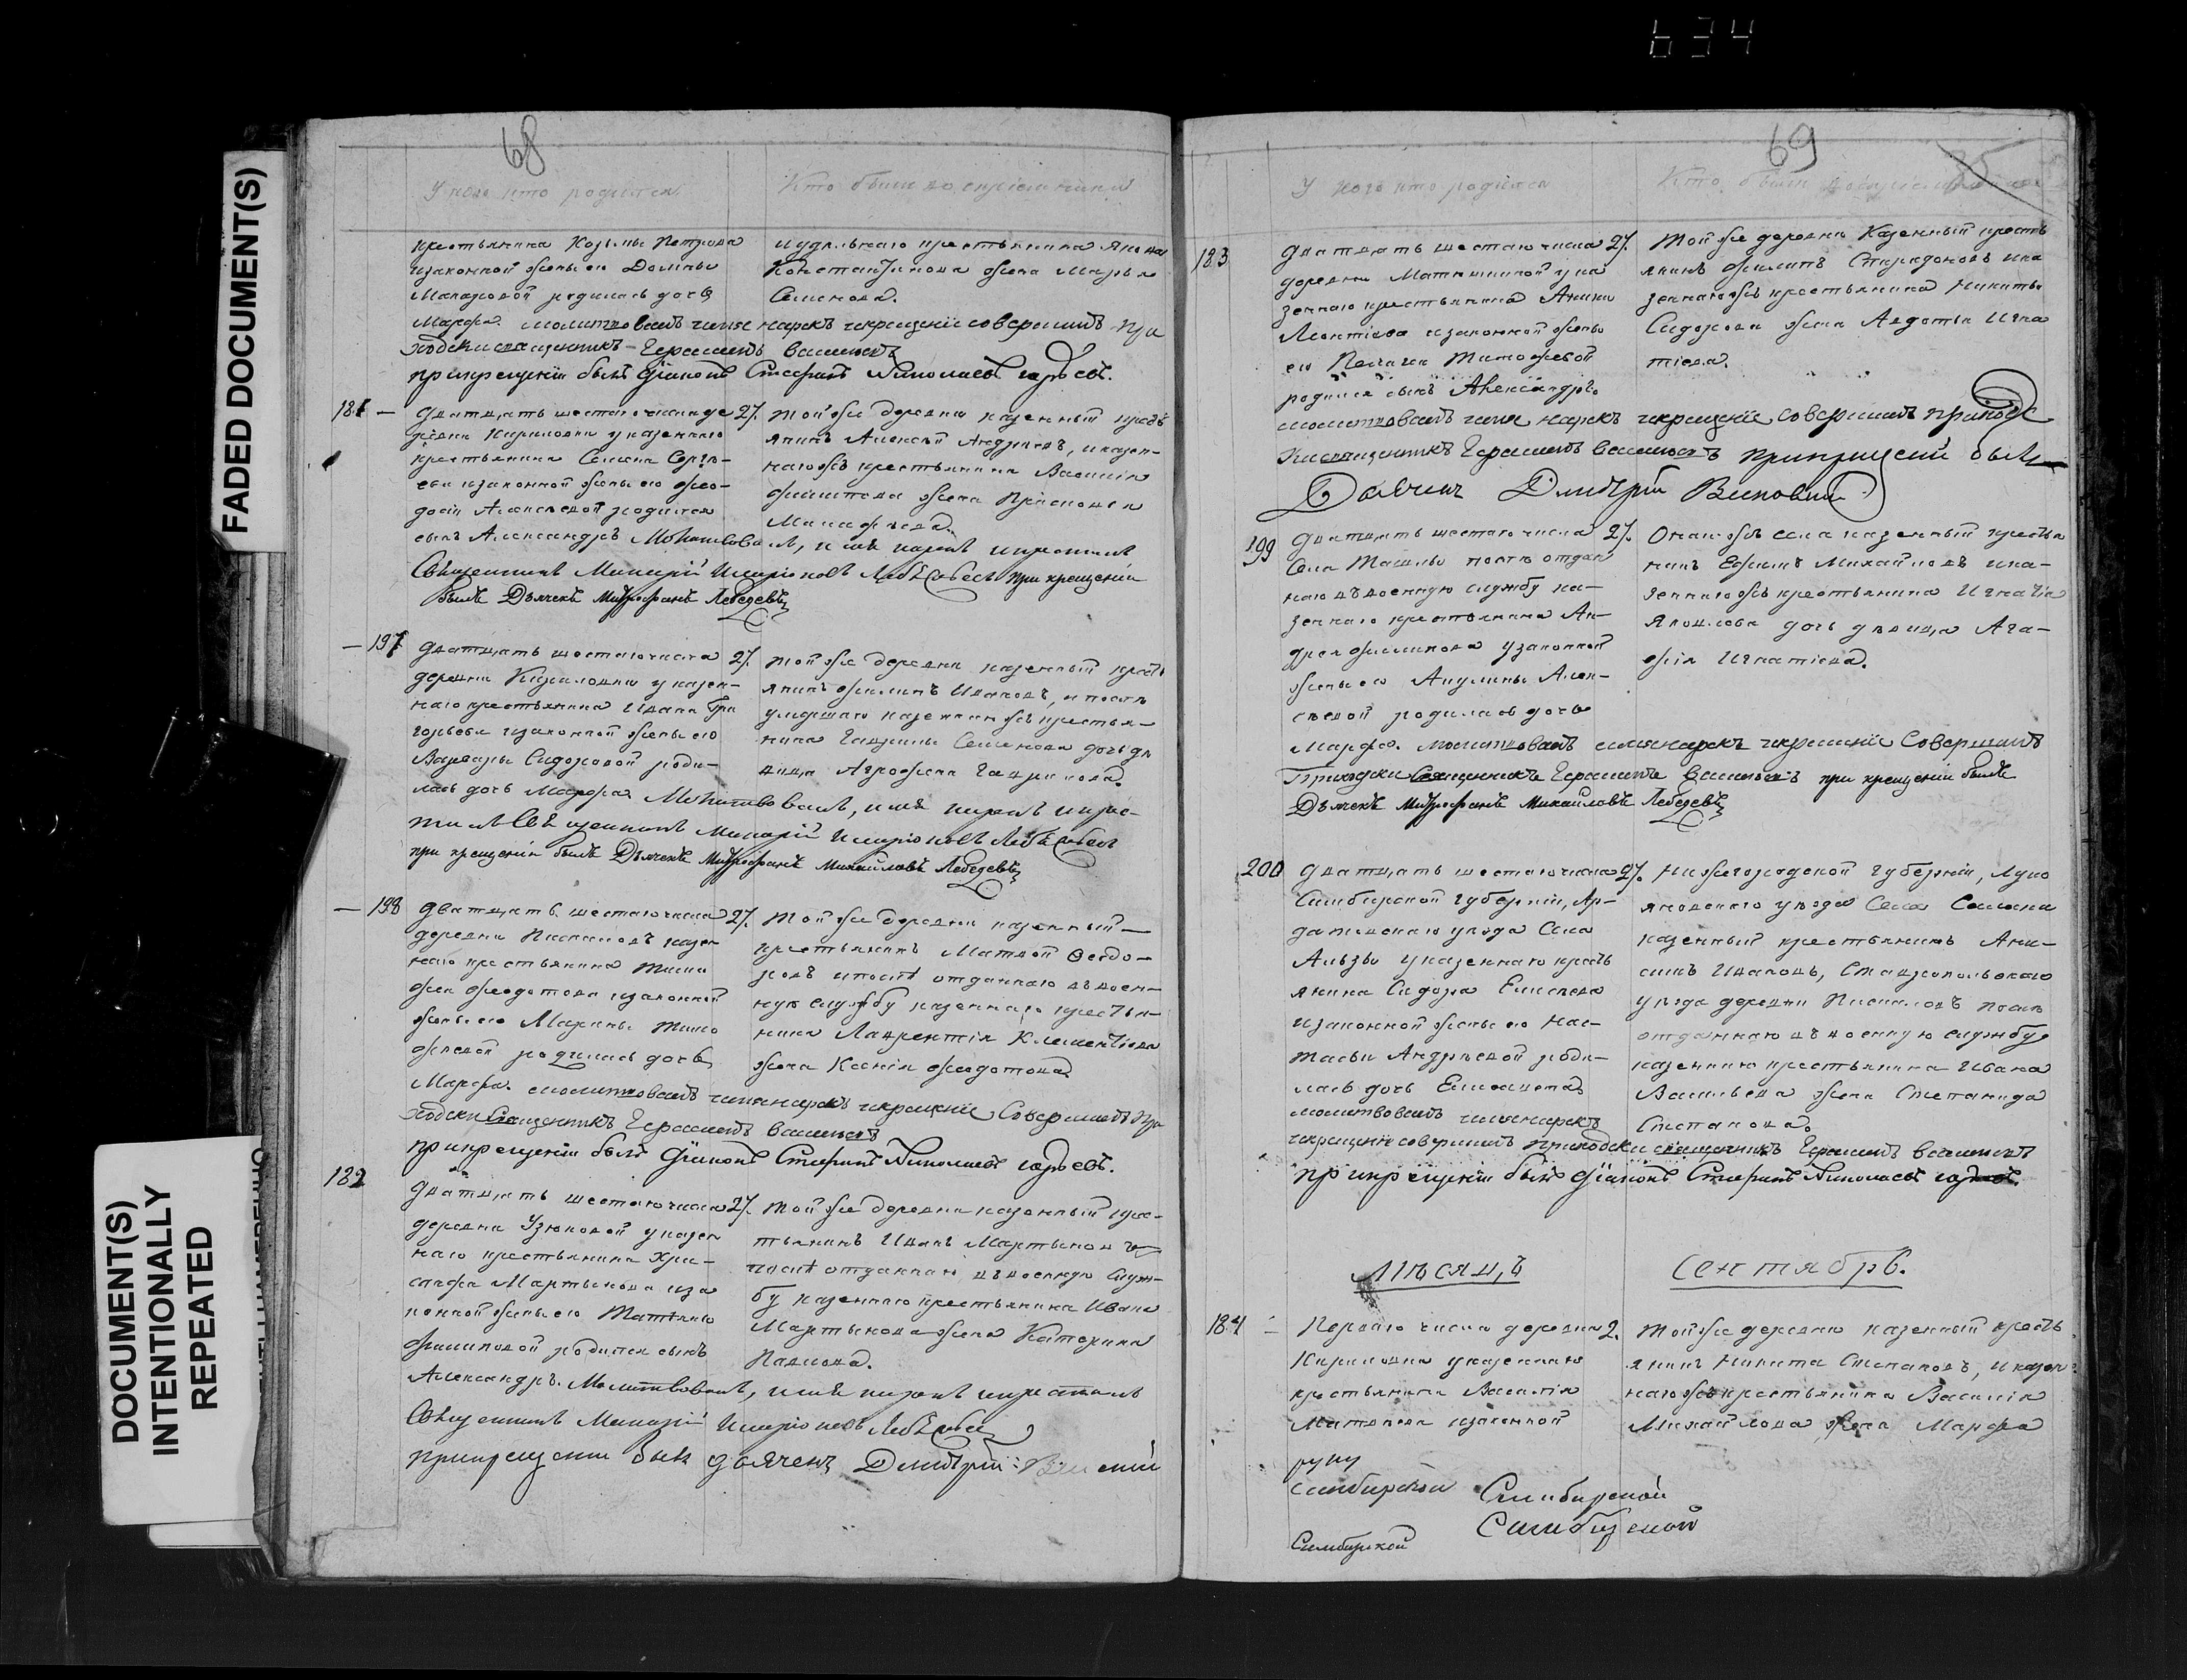 634
FADED DOCUMENT(S)
DOCUMENT(S)
INTENTIONALLY
REPEATED
68
У кого кто родился
Кто были восприемники
крестьянина Козьмы Петрова
изаконной жены ею Домны
Макаровой родилась дочь
Марфа. молитвовалъ имя нарекъ икрещение совершилъ При
ходски священникъ Герасимъ Васильевъ
при крещении былъ Диаконъ Стефанъ Николаевъ
и удельнаго крестьянина Якова
Константинова жена Марья
Семенова.
181 — Дватцать шестаго числа де 27.
ревни Кириловки у казеннаго
крестьянина Семена Серге-
ева изаконной жены ею Фео-
досьи Алексеевой родился
сынъ Александръ Молитвовалъ, имя нарекъ икрестилъ
Священникъ Макарий Иларионовъ Лебедевъ при крещении
былъ Дьячекъ Митрофанъ Лебедевъ
той же деревни казенный кресть
янинъ Алексей Андреевъ, иказен-
наго жъ крестьянина Василия
Филиппова жена
— 197 Дватцать шестаго числа 27.
деревни Кириловки у казен-
наго крестьянина Ивана Гри
горьева изаконной жены ею
Варвары Сидоровой роди-
лась дочь Марфа Молитвовалъ, имя нарекъ икрес-
тилъ Священникъ Макарий Иларионовъ Лебедевъ
при крещении былъ Дьячекъ Митрофанъ Михайловъ Лебедевъ
той же деревни казенный кресть
янинъ Филипъ Ивановъ, и после
умершаго казеннаго жъ крестья-
нина Гаврилы Семенова дочь де
вица Агрофена Гаврилова.
— 198 Дватцать шестаго числа 27.
деревни казен
наго крестьянина Тимо
фея Федотова изаконной
жены ею Марины Тимо
феевой родилась дочь
Марфа. молитвовалъ имя нарекъ икрещение Совершилъ При
ходски Священникъ Герасимъ Васильевъ
при крещении былъ Диаконъ Стефанъ Николаевъ
Той же деревни казенный —
крестьянинъ Матвей Федо-
ровъ и после отданнаго въ воен-
ную службу казеннаго крестья-
нина Лаврентия Клементиева
жена Ксения Федотова.
182 Дватцать шестаго числа 27.
деревни Узюковой у казен
наго крестьянина Хри-
санфа Мартынова иза
конной жены ею Татьяны
Филиповой родился сынъ
Александръ. Молитвовалъ, имя нарекъ икрестилъ
Священникъ Макарий Иларионовъ Лебедевъ
при крещении былъ дьячекъ Дмитрий
Той же деревни казенный крес-
тьянинъ Иванъ Мартыновъ и
после отданнаго въ военную служ-
бу казеннаго крестьянина Ивана
Мартынова жена Катерина
Павлова.
69
У кого кто родился
Кто были восприемники
183 Дватцать шестаго числа 27.
деревни Матюшкиной у ка
зеннаго крестьянина Аники
Леонтиева изаконной жены
ею Пелагеи Тимофевой
родился сынъ Александръ.
молитвовалъ имя нарекъ икрещение совершилъ приход
ски священникъ Герасимъ Васильевъ при крещении былъ
Дьячекъ Дмитрий
Той же деревни Казенный кресть
янинъ Филипъ Спиридоновъ ика
зеннаго жъ крестьянина Никиты
Сидорова жена Авдотья Игна
тиева.
199 Дватцать шестаго числа 27.
Села Ташлы после отдан
наго въ военную службу ка-
зеннаго крестьянина Ан-
дрея Филипова узаконной
жены ею Акулины Алек-
сеевой родилась дочь
Марфа. молитвовалъ имя нарекъ икрещение Совершилъ
Приходски Священникъ Герасимъ Васильевъ при крещении былъ
Дьячекъ Митрофанъ Михайловъ Лебедевъ
Онаго жъ села казенный крестья
нинъ Ефимъ Михайловъ ика-
зеннаго жъ крестьянина Игнатия
Яковлева дочь девица Ага-
фия Игнатиева.
200 Дватцать шестаго числа 27.
Симбирской губернии, Ар-
датовскаго уезда Села
у казеннаго кресть
янина Сидора Елисеева
изаконной жены ею Нас-
тасьи Андреевой роди-
лась дочь Елисавета
молитвовалъ имя нарекъ
икрещение совершилъ приходски священникъ Герасимъ Васильевъ
при крещении былъ Диаконъ Стефанъ Николаевъ
Нижегородской губернии, Луко
яновскаго уезда Села
казенный крестьянинъ Ани-
симъ Ивановъ, Ставропольскаго
уезда деревни после
отданнаго въ военную службу
казеннаго крестьянина Ивана
Васильева жена Степанида
Степанова.
Месяцъ Сентябрь.
184 — Перваго числа деревни 2.
Кириловки у казеннаго
крестьянина Василия
Матвеева изаконной
Той же деревни казенный кресть
янинъ Никита Степановъ, иказен
наго жъ крестьянина Василия
Михайлова жена Марфа
руку
Симбирской Симбирской
Симбирской
Симбирской